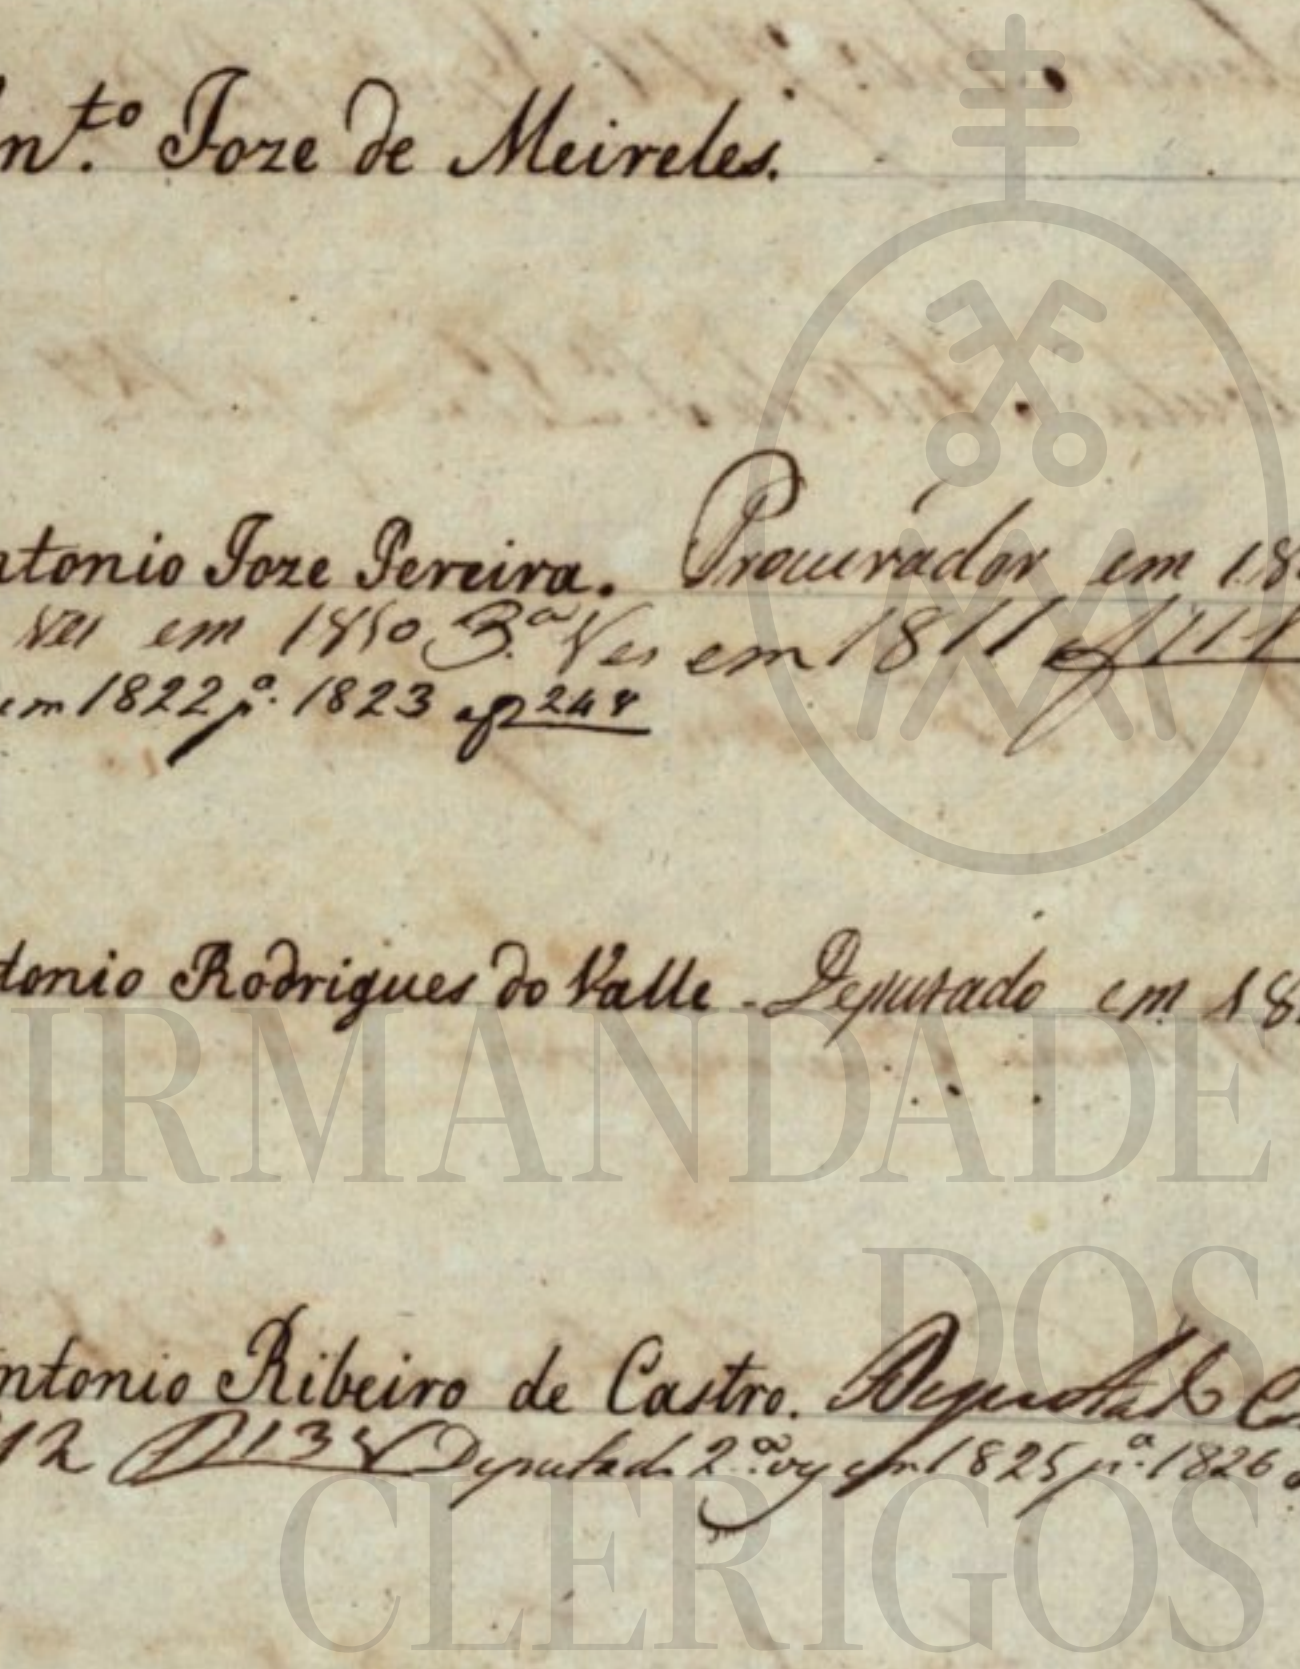 n.to Joze de Meireles.
ntonio Joze Pereira. Procurador em 18
Ves em 1810 3.a Ves em 1811
em 1822 p.a 1823 af 248
tonio Rodrigues do Valle - Deputado em 18
IRMANDADE
DOS
ntonio Ribeiro de Castro. Deputado
12 Deputado 2.a vez em 1825 p.a 1826
CLERIGOS